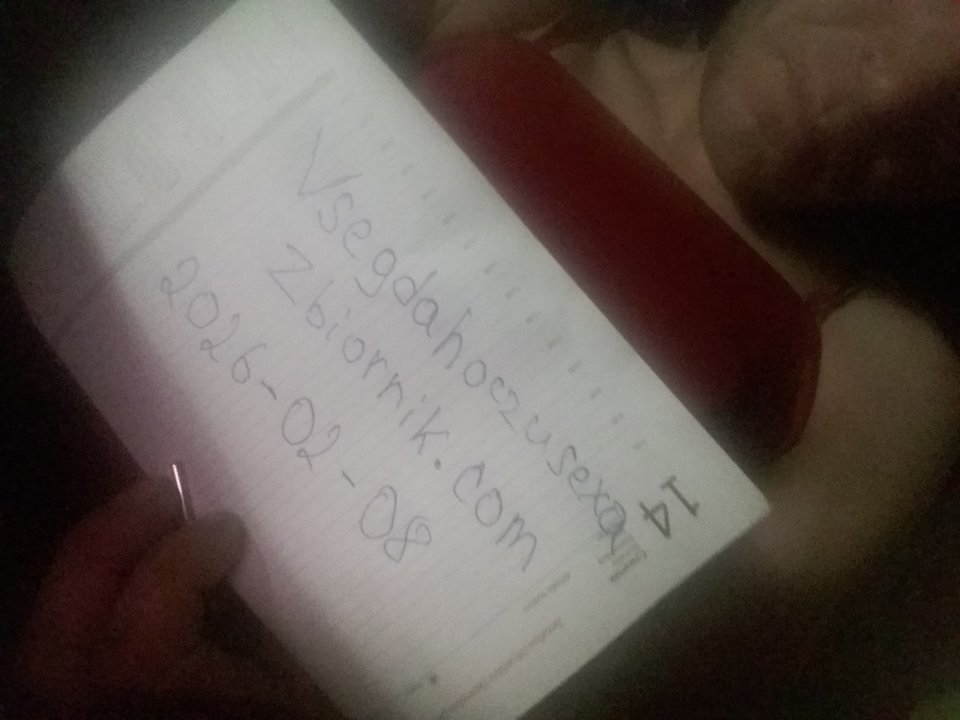 14
Vsegdahoczusexa
Zbiornik.com
2026-02-08